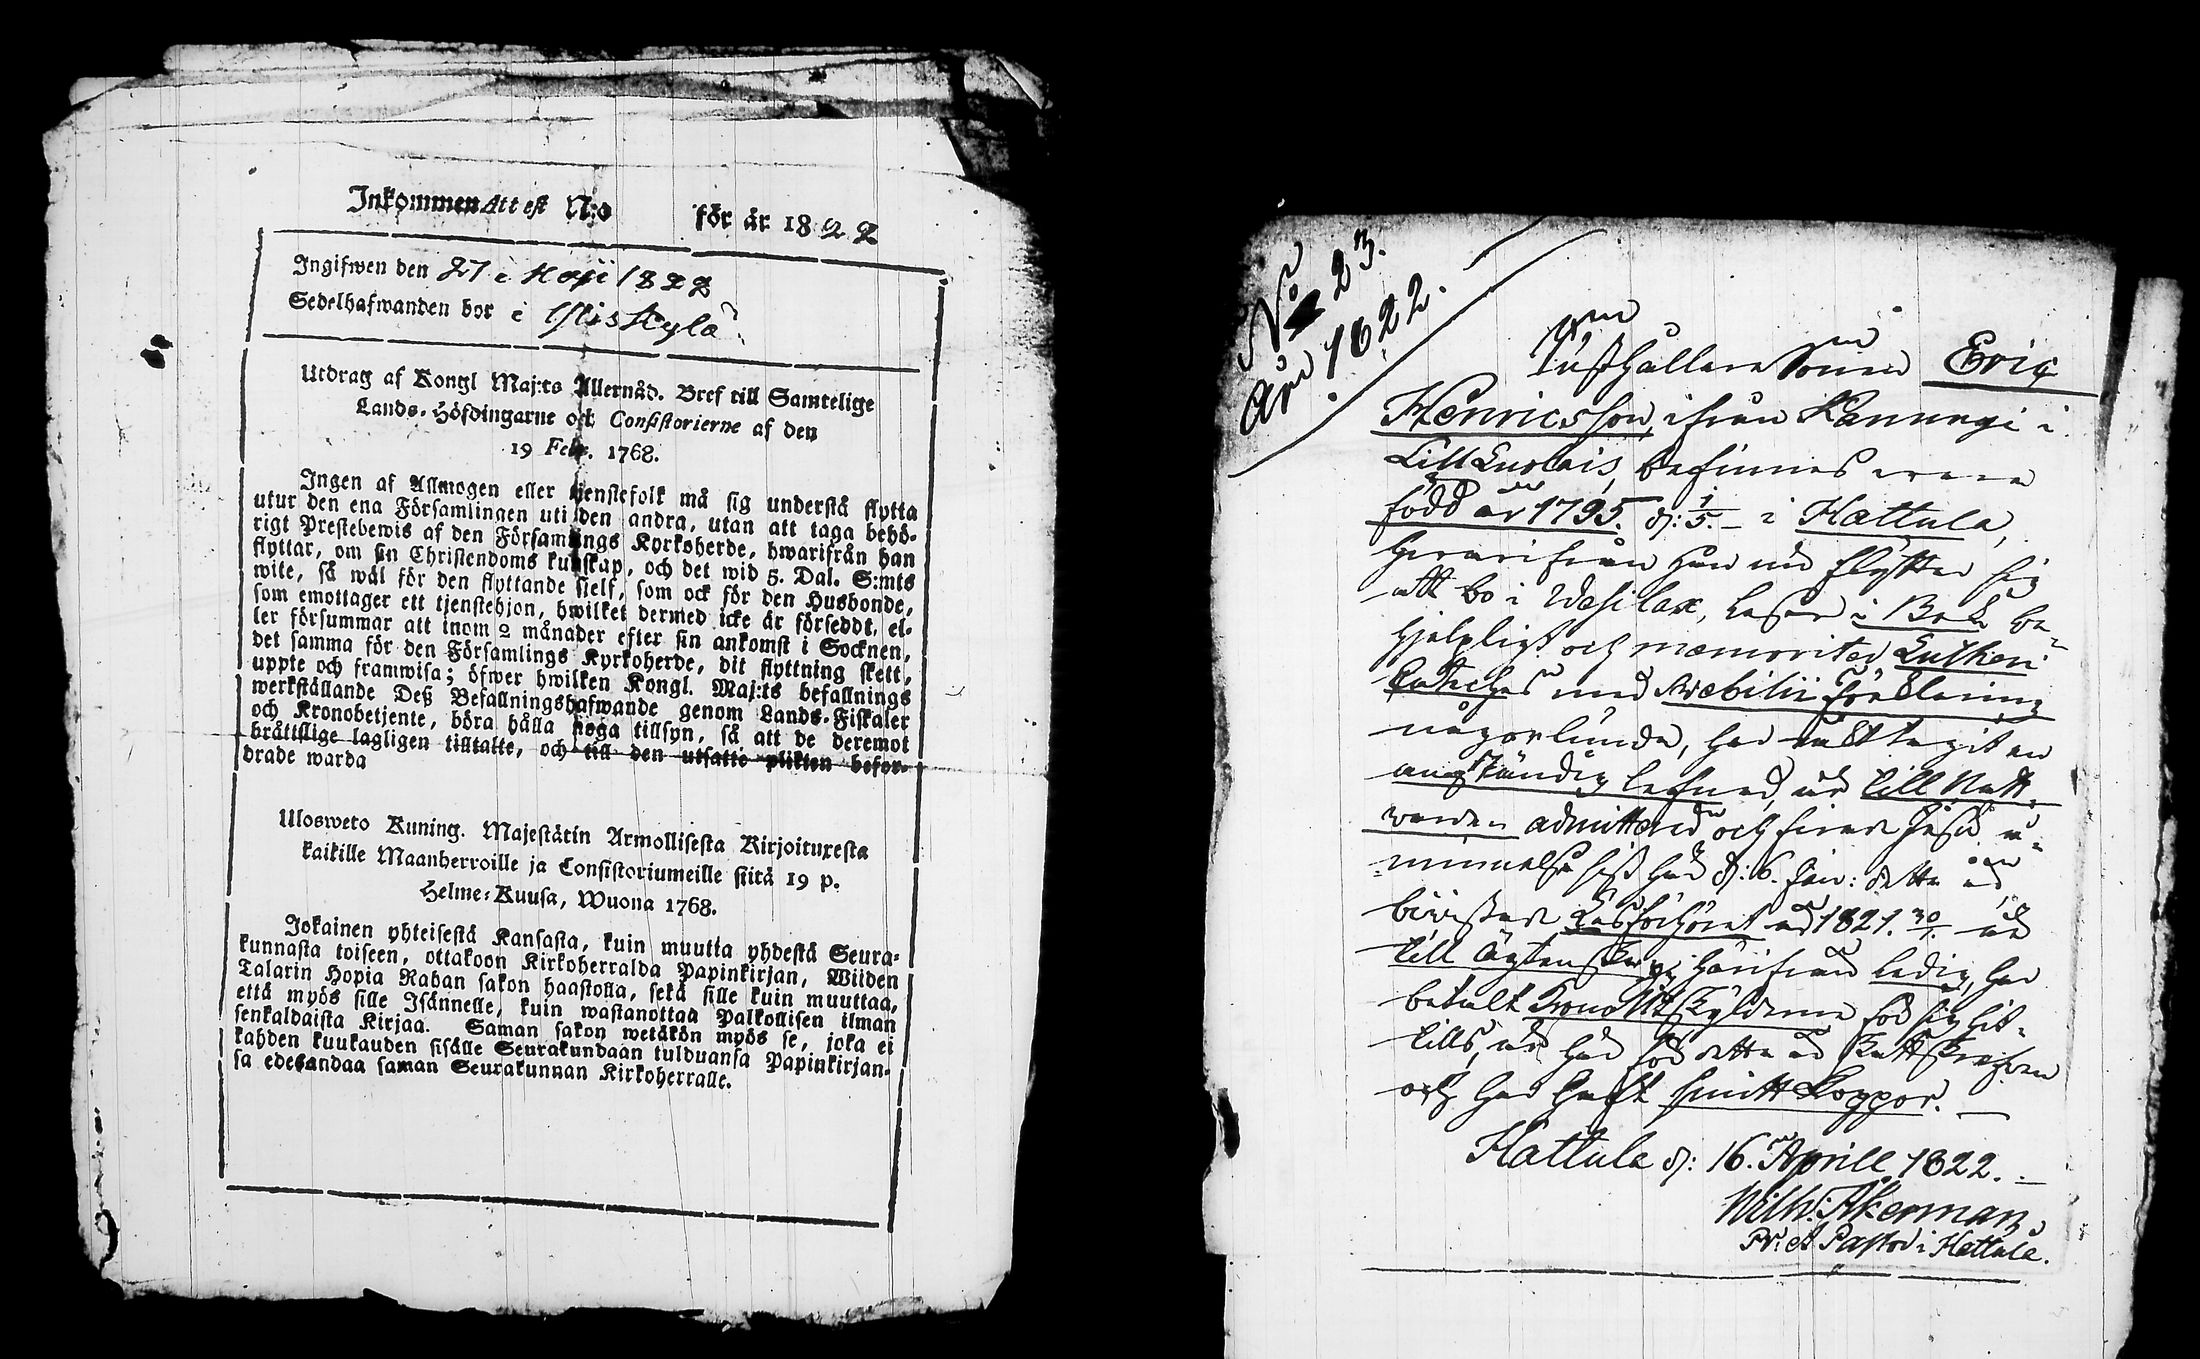 Inkommen Attest N:o för år 1822
Ingifwen den 27 Maji 1822
Sedelhafwanden bor i Yliskylä
Utdrag af Kongl Maj:ts Allernåd. Bref till Samtelige
Lands-Höfdingarne och Consistorierne af den
19 Febr. 1768.
Ingen af Allmogen eller tjenstefolk må sig understå flytta
utur den ena Församlingen uti den andra, utan att taga behö-
rigt Prestebewis af den Församlings Kyrkoherde, hwarifrån han
flyttar, om sin Christendoms kunskap, och det wid 5. Dal. S:mts
wite, så wäl för den flyttande sielf, som ock för den Husbonde,
som emottager ett tjenstehjon, hwilket dermed icke är försedt, el-
ler försummar att inom 2 månader efter sin ankomst i Socknen,
det samma för den Församlings Kyrkoherde, dit flyttning skett,
uppte och framwisa; öfwer hwilken Kongl. Maj:ts befallnings
werkställande Deß Befallningshafwande genom Lands-Fiskaler
och Kronobetjente, böra hålla noga tillsyn, så att de deremot
bråttslige lagligen tilltalte, och till den utsatte plikten befor-
drade warda
Ulosweto Kuning. Majestätin Armollisesta Kirjoituxesta
kaikille Maanherroille ja Consistoriumeille siitä 19 p.
Helme-Kuusa, Wuona 1768.
Jokainen yhteisestä Kansasta, kuin muutta yhdestä Seura-
kunnasta toiseen, ottakoon Kirkoherralda Papinkirjan, Wiiden
Talarin Hopia Rahan sakon haastolla, sekä sille kuin muuttaa,
että myös sille Isännelle, kuin wastanottaa Palkollisen ilman
senkaldaista Kirjaa. Saman sakon wetäkön myös se, joka ei
kahden kuukauden sisälle Seurakundaan tulduansa Papinkirjan-
sa edesandaa saman Seurakunnan Kirkoherralle.
No 23.
År 1822.
Rusthållare Sonen Eric
Henricsson, ifrån Kannungi i
Lill Luolais, befinnes vara
född år 1795. d: 1/5. i Hattula,
hvarifrån han nu flytter sig
att bo i Wesilax, Läser i Bok be-
hjelpligt och memoriter Lutheri
Cateches med Swebilii Förklaring
någorlunda, har
anständig lefnad, är till Natt-
varden admitterad och firade Jesu å-
minnelse sist här d: 6. Jan: detta år
bivistade Läsförhöret 1821.
till Ägtenskap härifrån ledig, har
betalt Krono Utskylderne för sig hit-
tills, är här för detta år Skattskrefven
och har haft Smitt Koppor.
Hattula d: 16. Aprill 1822.
Wilh: Åkerman.
Pr: et Pastor i Hattula.